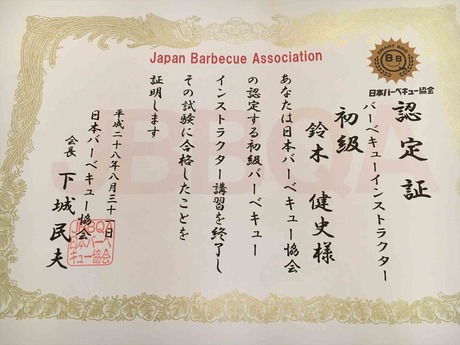 Japan Barbecue Association
SMART BBQ
BBQ
日本バーベキュー協会
認定証
バーベキューインストラクター
初級
鈴木 健史様
あなたは日本バーベキュー協会
の認定する初級バーベキュー
インストラクター講習を終了し
その試験に合格したことを
証明します
平成二十八年八月三十日
日本バーベキュー協会
会長 下城民夫
JBBQA
日本バーベ
キュー協会
JBBQA